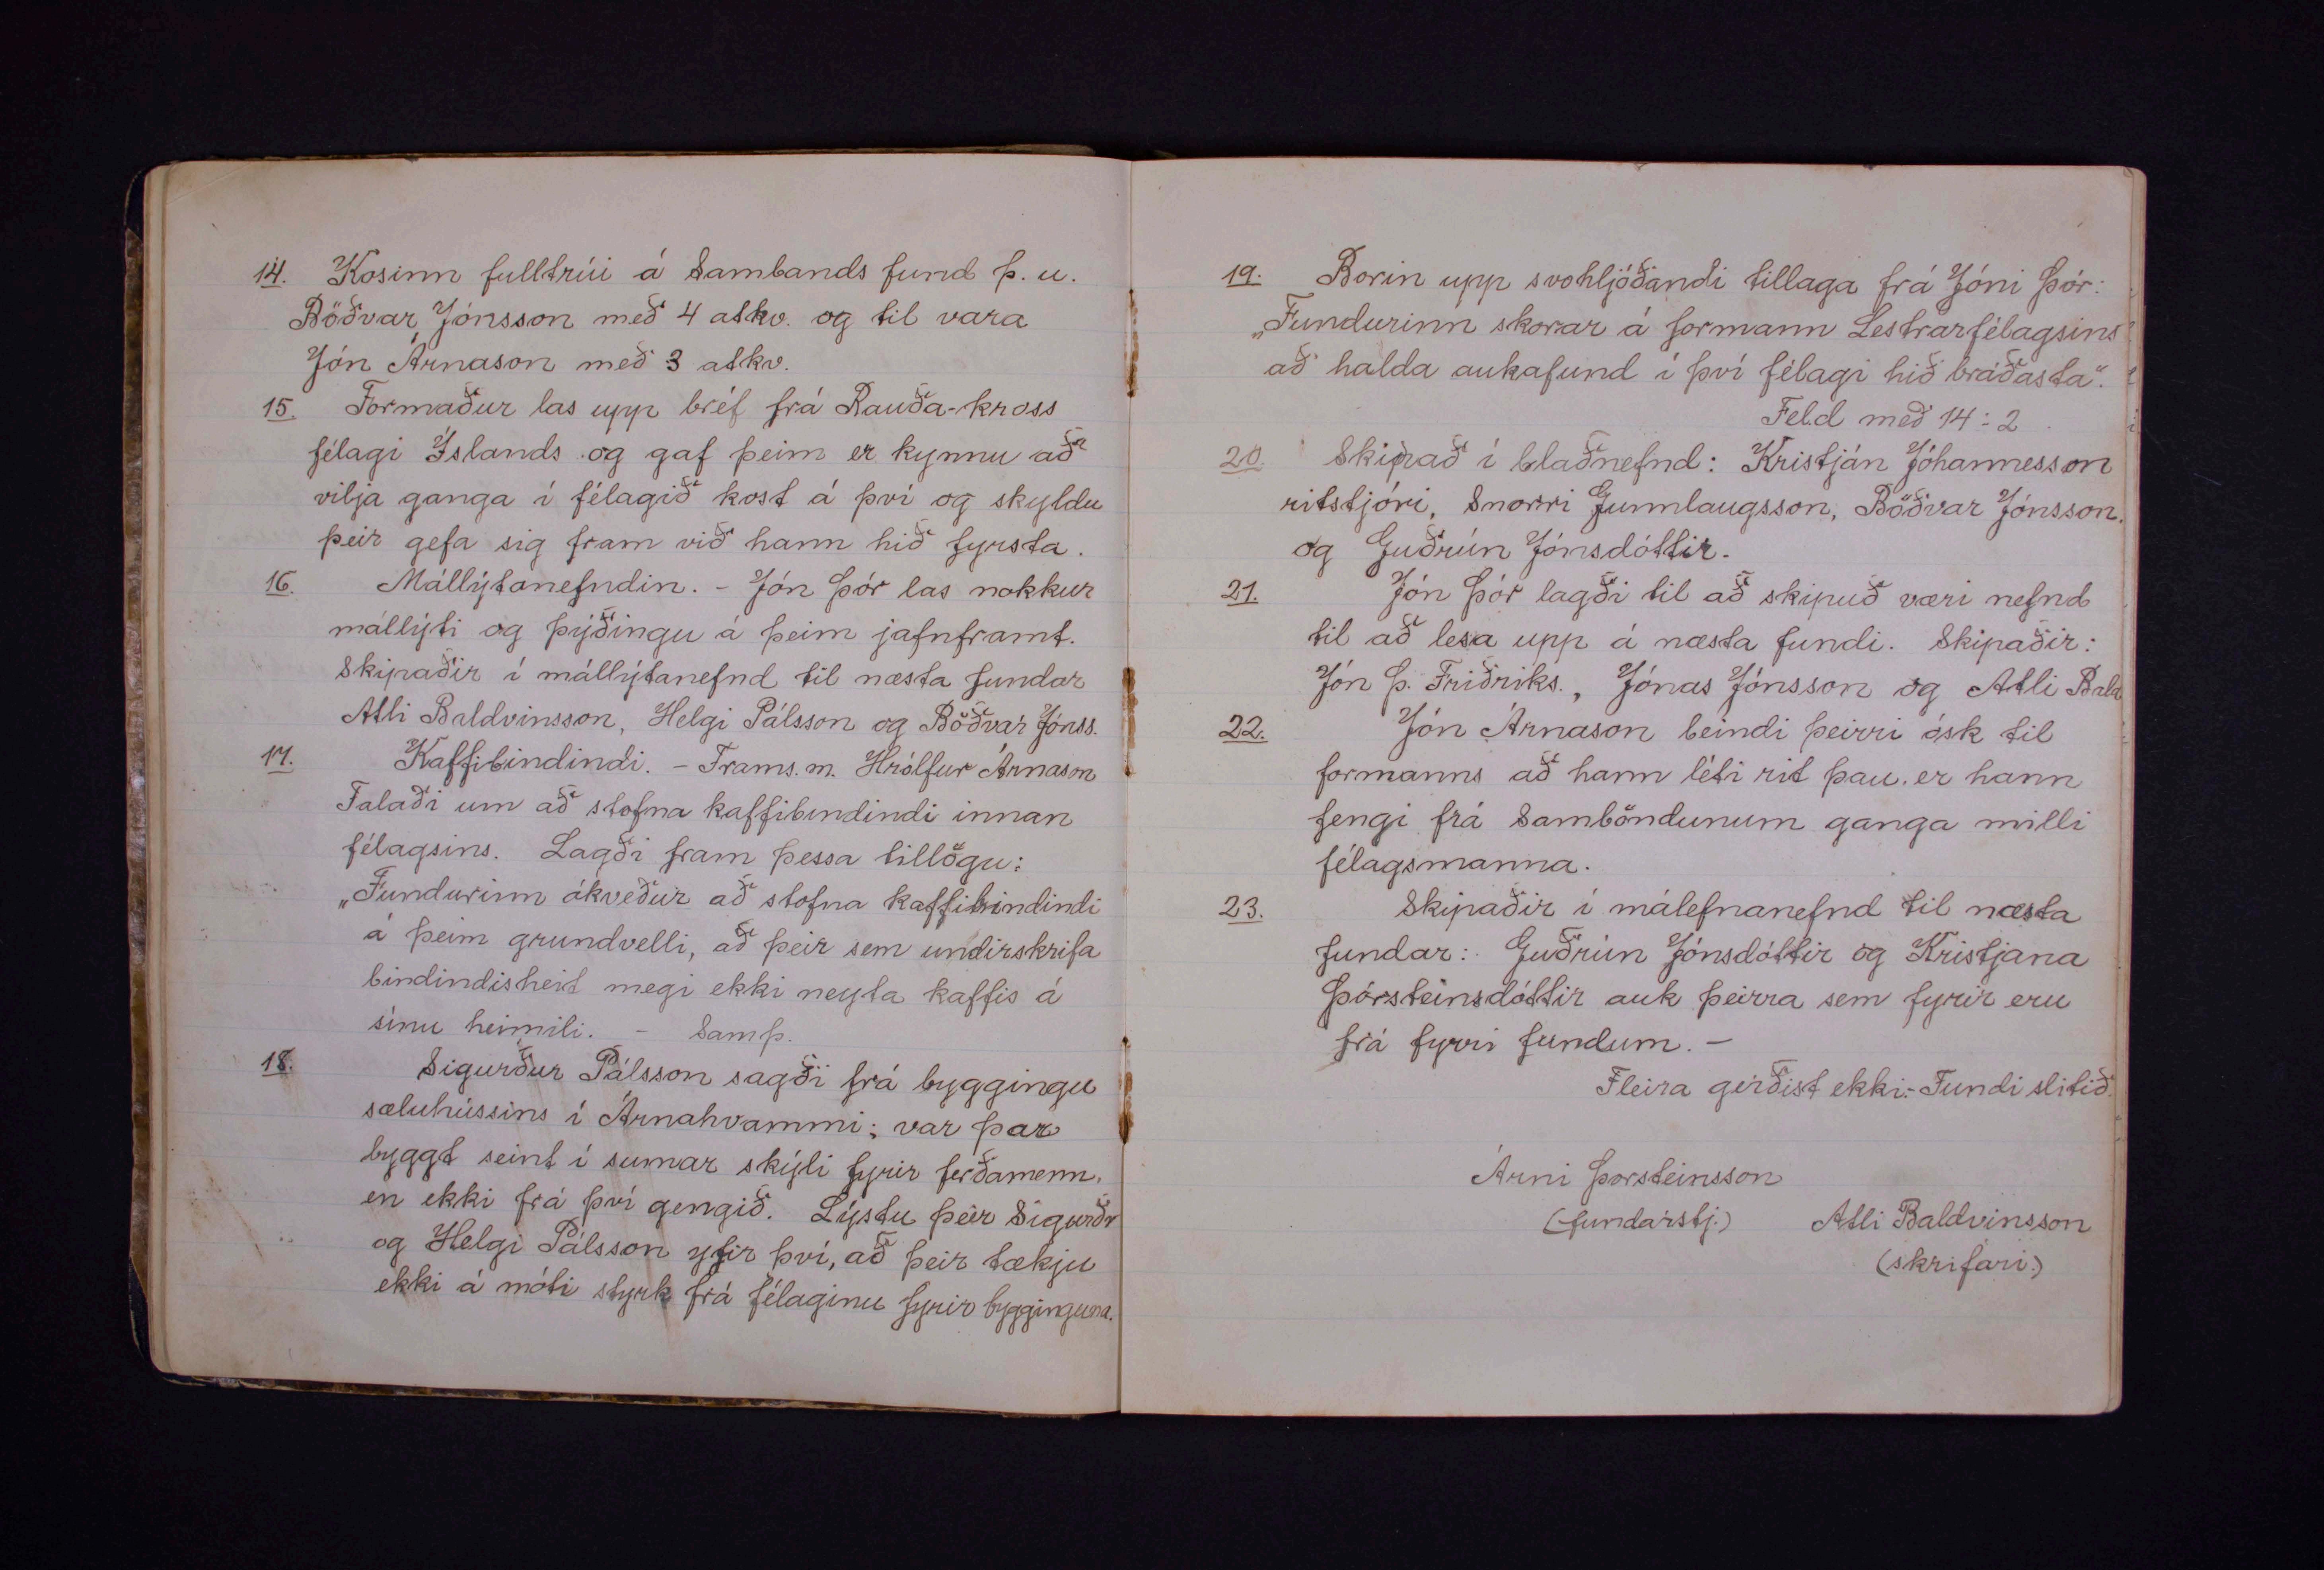 14. Kosinn fulltrúi á Sambands fund þ. u.
Böðvar Jónsson með 4 atkv. og til vara
Jón Árnason með 3 atkv.
15. Formaður las upp bréf frá Rauða-kross
félagi Íslands og gaf þeim er kynnu að
vilja ganga í félagið kost á því og skyldu
þeir gefa sig fram við hann hið fyrsta.
16. Mállýtanefndin. - Jón Þór las nokkur
mállýti og þýðingu á þeim jafnframt.
Skipaðir í mállýtanefnd til næsta fundar
Atli Baldvinsson, Helgi Pálsson og Böðvar Jónss.
17. Kaffibindindi. - Frams.m. Hrólfur Árnason
Talaði um að stofna kaffibindindi innan
félagsins. Lagði fram þessa tillögu:
„Fundurinn ákveður að stofna kaffibindindi
á þeim grundvelli, að þeir sem undirskrifa
bindindisheit megi ekki neyta kaffis á
sínu heimili. - Samþ.
18. Sigurður Pálsson sagði frá byggingu
sæluhússins í Árnahvammi; var þar
byggt seint í sumar skýli fyrir ferðamenn,
en ekki frá því gengið. Lýstu þeir Sigurðr
og Helgi Pálsson yfir því, að þeir tækju
ekki á móti styrk frá félaginu fyrir bygginguna.
19. Borin upp svohljóðandi tillaga frá Jóni Þór:
„Fundurinn skorar á formann Lestrarfélagsins
að halda aukafund í því félagi hið bráðasta“.
Feld með 14:2
20. Skipað í blaðnefnd: Kristján Jóhannesson
ritstjóri, Snorri Gunnlaugsson, Böðvar Jónsson,
og Guðrún Jónsdóttir.
21. Jón Þór lagði til að skipuð væri nefnd
til að lesa upp á næsta fundi. Skipaðir:
Jón Þ. Friðriks., Jónas Jónsson og Atli Bald
22. Jón Árnason beindi þeirri ósk til
formanns að hann léti rit þau er hann
fengi frá Samböndunum ganga milli
félagsmanna.
23. Skipaðir í málefnanefnd til næsta
fundar: Guðrún Jónsdóttir og Kristjana
Þórsteinsdóttir auk þeirra sem fyrir eru
frá fyrri fundum. -
Fleira gerðist ekki.- Fundi slitið.
Árni Þorsteinsson
(fundarstj.) Atli Baldvinsson
(skrifari.)